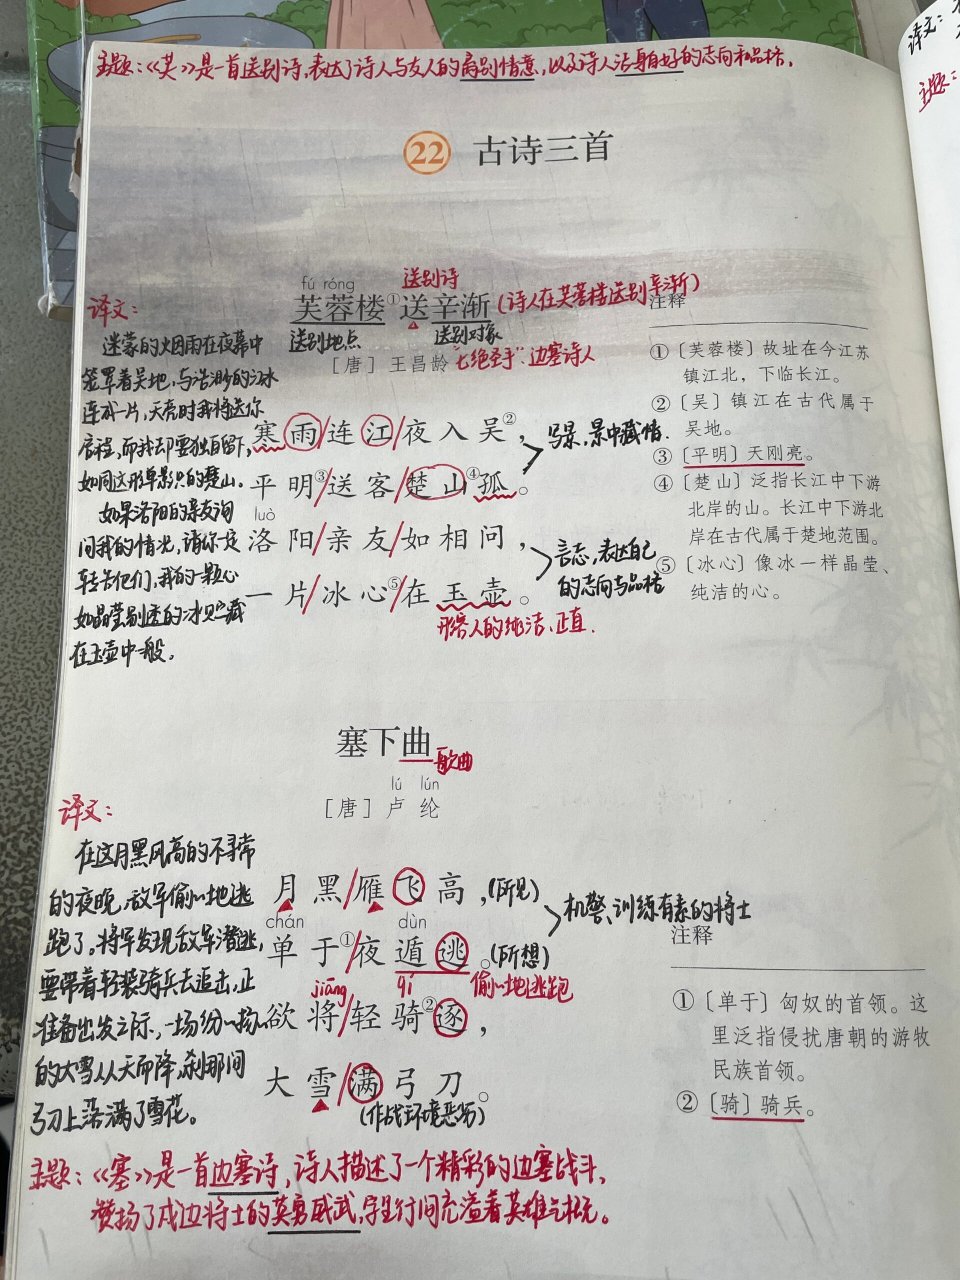 主题:《芙》是一首送别诗,表达了诗人与友人的离别情意,以及诗人洁身自好的志向和品格。
译文:
主题:
22 古诗三首
送别诗
fú róng
芙蓉楼①送辛渐(诗人在芙蓉楼送别辛渐)
送别地点 送别对象
[唐] 王昌龄 "七绝圣手" 边塞诗人
译文:
迷蒙的烟雨在夜幕中
笼罩着吴地,与浩渺的江水
连成一片,天亮时我将送你
启程,而我却要独自留下,
如同这形单影只的楚山。
如果洛阳的亲友询
问我的情况,请你一定
转告他们,我的一颗心
如晶莹剔透的冰贮藏
在玉壶中一般。
寒雨/连江/夜入吴②,
写景,景中藏情.
平明③/送客/楚山④孤。
luò
洛阳/亲友/如相问,
言志,表达自己
的志向与品格
一片/冰心⑤/在玉壶。
形容人的纯洁、正直.
注释
①〔芙蓉楼〕故址在今江苏
镇江北,下临长江。
②〔吴〕镇江在古代属于
吴地。
③〔平明〕天刚亮。
④〔楚山〕泛指长江中下游
北岸的山。长江中下游北
岸在古代属于楚地范围。
⑤〔冰心〕像冰一样晶莹、
纯洁的心。
塞下曲
歌曲
lú lún
[唐] 卢纶
译文:
在这月黑风高的不寻常
的夜晚,敌军偷偷地逃
跑了,将军发现敌军潜逃,
要带着轻装骑兵去追击,正
准备出发之际,一场纷纷扬扬
的大雪从天而降,刹那间
弓刀上落满了雪花。
月黑/雁飞高,(所见)
chán dùn
单于①/夜遁逃。(所想)
机警、训练有素的将士
jiāng qí 偷偷地逃跑
欲将/轻骑②逐,
大雪/满弓刀。
(作战环境恶劣)
注释
①〔单于〕匈奴的首领。这
里泛指侵扰唐朝的游牧
民族首领。
②〔骑〕骑兵。
主题:《塞》是一首边塞诗,诗人描述了一个精彩的边塞战斗,
赞扬了戍边将士的英勇威武,字里行间充溢着英雄气概。